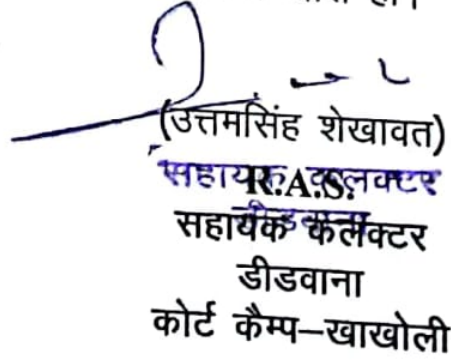 (उत्तमसिंह शेखावत)
सहायक कलक्टर
R.A.S.
डीडवाना
सहायक कलक्टर
डीडवाना
कोर्ट कैम्प–खाखोली